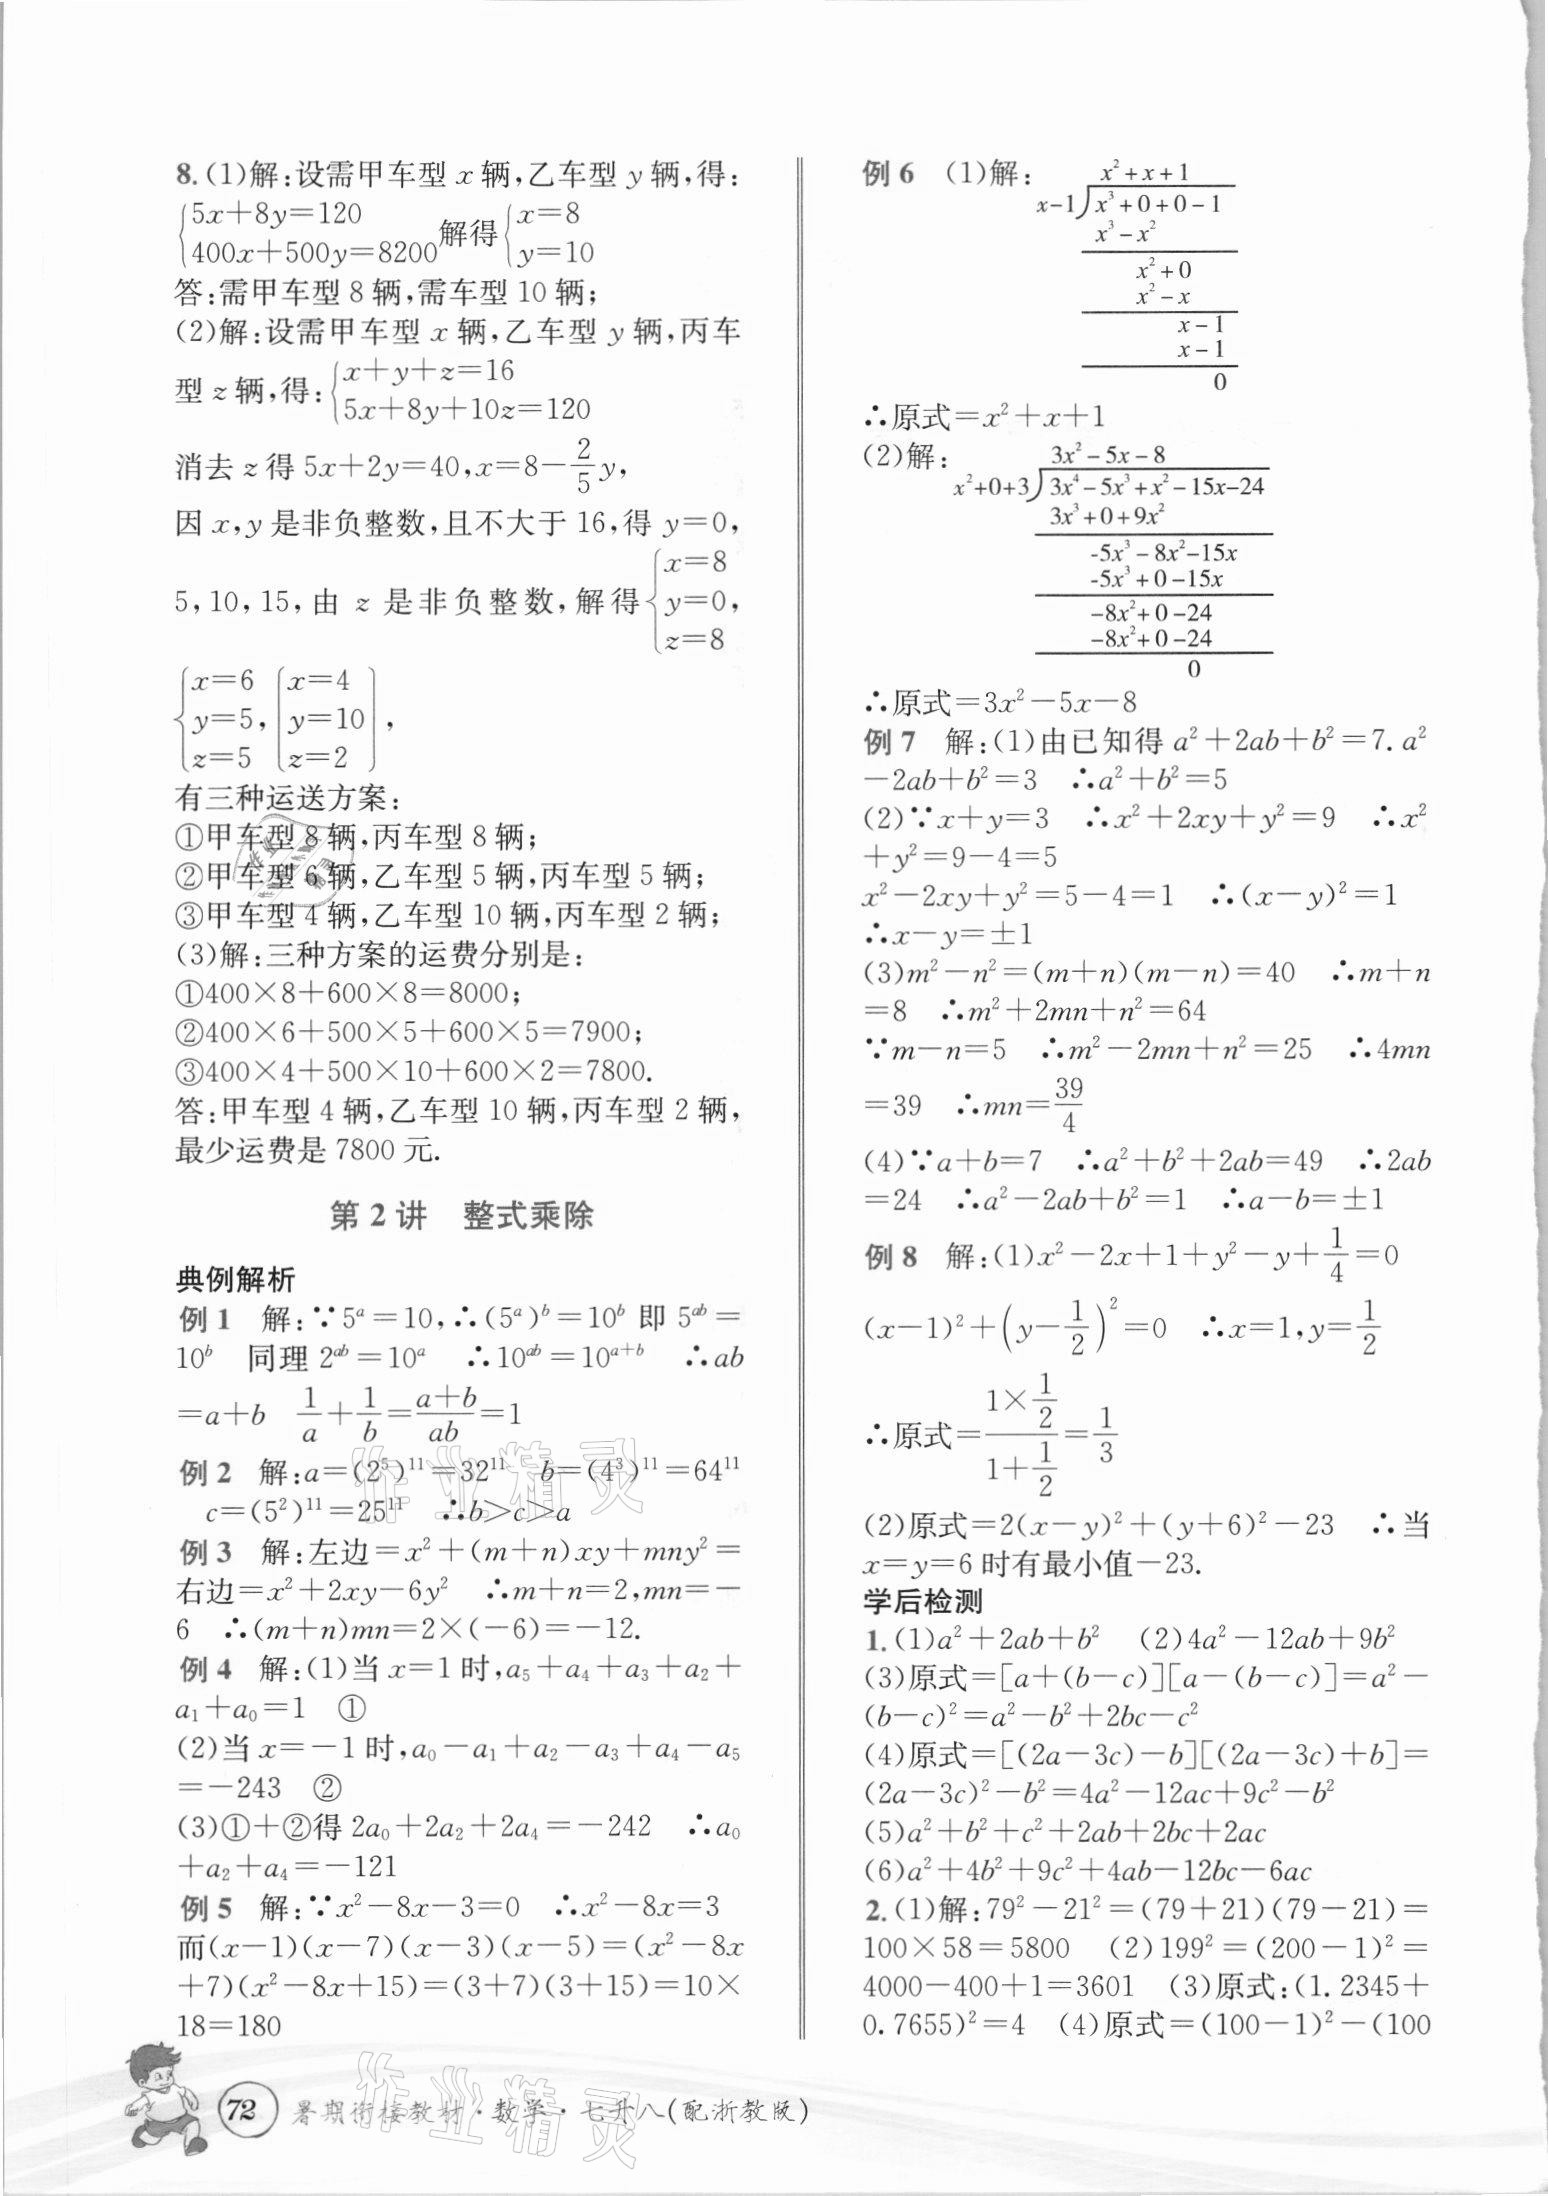 8.(1)解:设需甲车型 x 辆,乙车型 y 辆,得:
{5x+8y=120
400x+500y=8200 解得{x=8
y=10
答:需甲车型 8 辆,需车型 10 辆;
(2)解:设需甲车型 x 辆,乙车型 y 辆,丙车
型 z 辆,得:{x+y+z=16
5x+8y+10z=120
消去 z 得 5x+2y=40,x=8-2/5y,
因 x,y 是非负整数,且不大于 16,得 y=0,
5,10,15,由 z 是非负整数,解得{x=8
y=0,
z=8
{x=6
y=5,
z=5
{x=4
y=10
z=2},
有三种运送方案:
①甲车型 8 辆,丙车型 8 辆;
②甲车型 6 辆,乙车型 5 辆,丙车型 5 辆;
③甲车型 4 辆,乙车型 10 辆,丙车型 2 辆;
(3)解:三种方案的运费分别是:
①400×8+600×8=8000;
②400×6+500×5+600×5=7900;
③400×4+500×10+600×2=7800.
答:甲车型 4 辆,乙车型 10 辆,丙车型 2 辆,
最少运费是 7800 元.
第 2 讲 整式乘除
典例解析
例 1 解:∵5ᵃ=10,∴(5ᵃ)ᵇ=10ᵇ 即 5ᵃᵇ=
10ᵇ 同理 2ᵃᵇ=10ᵃ ∴10ᵃᵇ=10ᵃ⁺ᵇ ∴ab
=a+b 1/a+1/b=(a+b)/ab=1
例 2 解:a=(2⁵)¹¹=32¹¹ b=(4³)¹¹=64¹¹
c=(5²)¹¹=25¹¹ ∴b>c>a
例 3 解:左边=x²+(m+n)xy+mny²=
右边=x²+2xy-6y² ∴m+n=2,mn=-
6 ∴(m+n)mn=2×(-6)=-12.
例 4 解:(1)当 x=1 时,a₅+a₄+a₃+a₂+
a₁+a₀=1 ①
(2)当 x=-1 时,a₀-a₁+a₂-a₃+a₄-a₅
=-243 ②
(3)①+②得 2a₀+2a₂+2a₄=-242 ∴a₀
+a₂+a₄=-121
例 5 解:∵x²-8x-3=0 ∴x²-8x=3
而(x-1)(x-7)(x-3)(x-5)=(x²-8x
+7)(x²-8x+15)=(3+7)(3+15)=10×
18=180
例 6 (1)解:
x²+x+1
x-1)x³+0+0-1
x³-x²
x²+0
x²-x
x-1
x-1
0
∴原式=x²+x+1
(2)解:
3x²-5x-8
x²+0+3)3x⁴-5x³+x²-15x-24
3x³+0+9x²
-5x³-8x²-15x
-5x³+0-15x
-8x²+0-24
-8x²+0-24
0
∴原式=3x²-5x-8
例 7 解:(1)由已知得 a²+2ab+b²=7.a²
-2ab+b²=3 ∴a²+b²=5
(2)∵x+y=3 ∴x²+2xy+y²=9 ∴x²
+y²=9-4=5
x²-2xy+y²=5-4=1 ∴(x-y)²=1
∴x-y=±1
(3)m²-n²=(m+n)(m-n)=40 ∴m+n
=8 ∴m²+2mn+n²=64
∵m-n=5 ∴m²-2mn+n²=25 ∴4mn
=39 ∴mn=39/4
(4)∵a+b=7 ∴a²+b²+2ab=49 ∴2ab
=24 ∴a²-2ab+b²=1 ∴a-b=±1
例 8 解:(1)x²-2x+1+y²-y+1/4=0
(x-1)²+(y-1/2)²=0 ∴x=1,y=1/2
∴原式=(1×1/2)/(1+1/2)=1/3
(2)原式=2(x-y)²+(y+6)²-23 ∴当
x=y=6 时有最小值-23.
学后检测
1.(1)a²+2ab+b² (2)4a²-12ab+9b²
(3)原式=[a+(b-c)][a-(b-c)]=a²-
(b-c)²=a²-b²+2bc-c²
(4)原式=[(2a-3c)-b][(2a-3c)+b]=
(2a-3c)²-b²=4a²-12ac+9c²-b²
(5)a²+b²+c²+2ab+2bc+2ac
(6)a²+4b²+9c²+4ab-12bc-6ac
2.(1)解:79²-21²=(79+21)(79-21)=
100×58=5800 (2)199²=(200-1)²=
4000-400+1=3601 (3)原式:(1.2345+
0.7655)²=4 (4)原式=(100-1)²-(100
72 暑期衔接教材·数学·七升八(配浙教版)
作业精灵
作业精灵